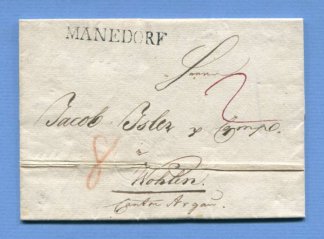 MÄNEDORF
Herrn
2
Jacob Isler & Comp.
8
à
Wohlen.
Canton Argau.